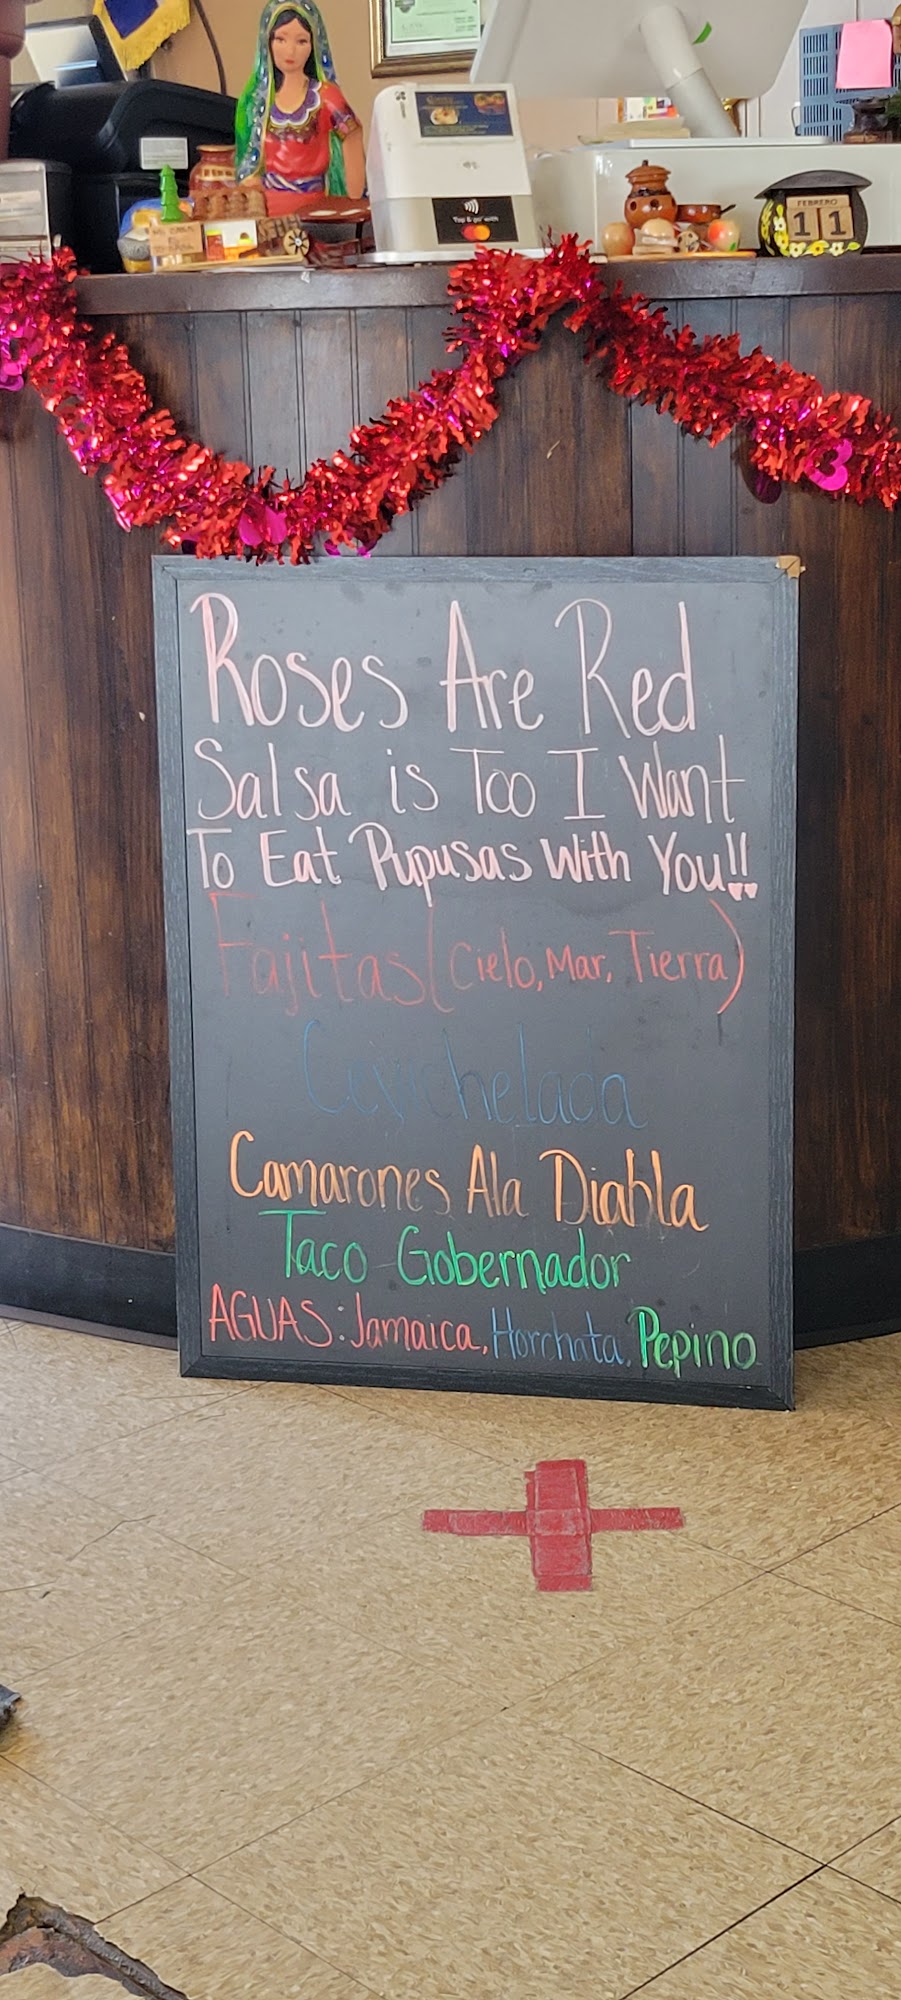 Tap & go with
FEBRERO
11
Roses Are Red
Salsa is Too I Want
To Eat Pupusas With You!!
Fajitas (Cielo, Mar, Tierra)
Camarones Ala Diabla
Taco Gobernador
AGUAS: Jamaica, Horchata, Pepino